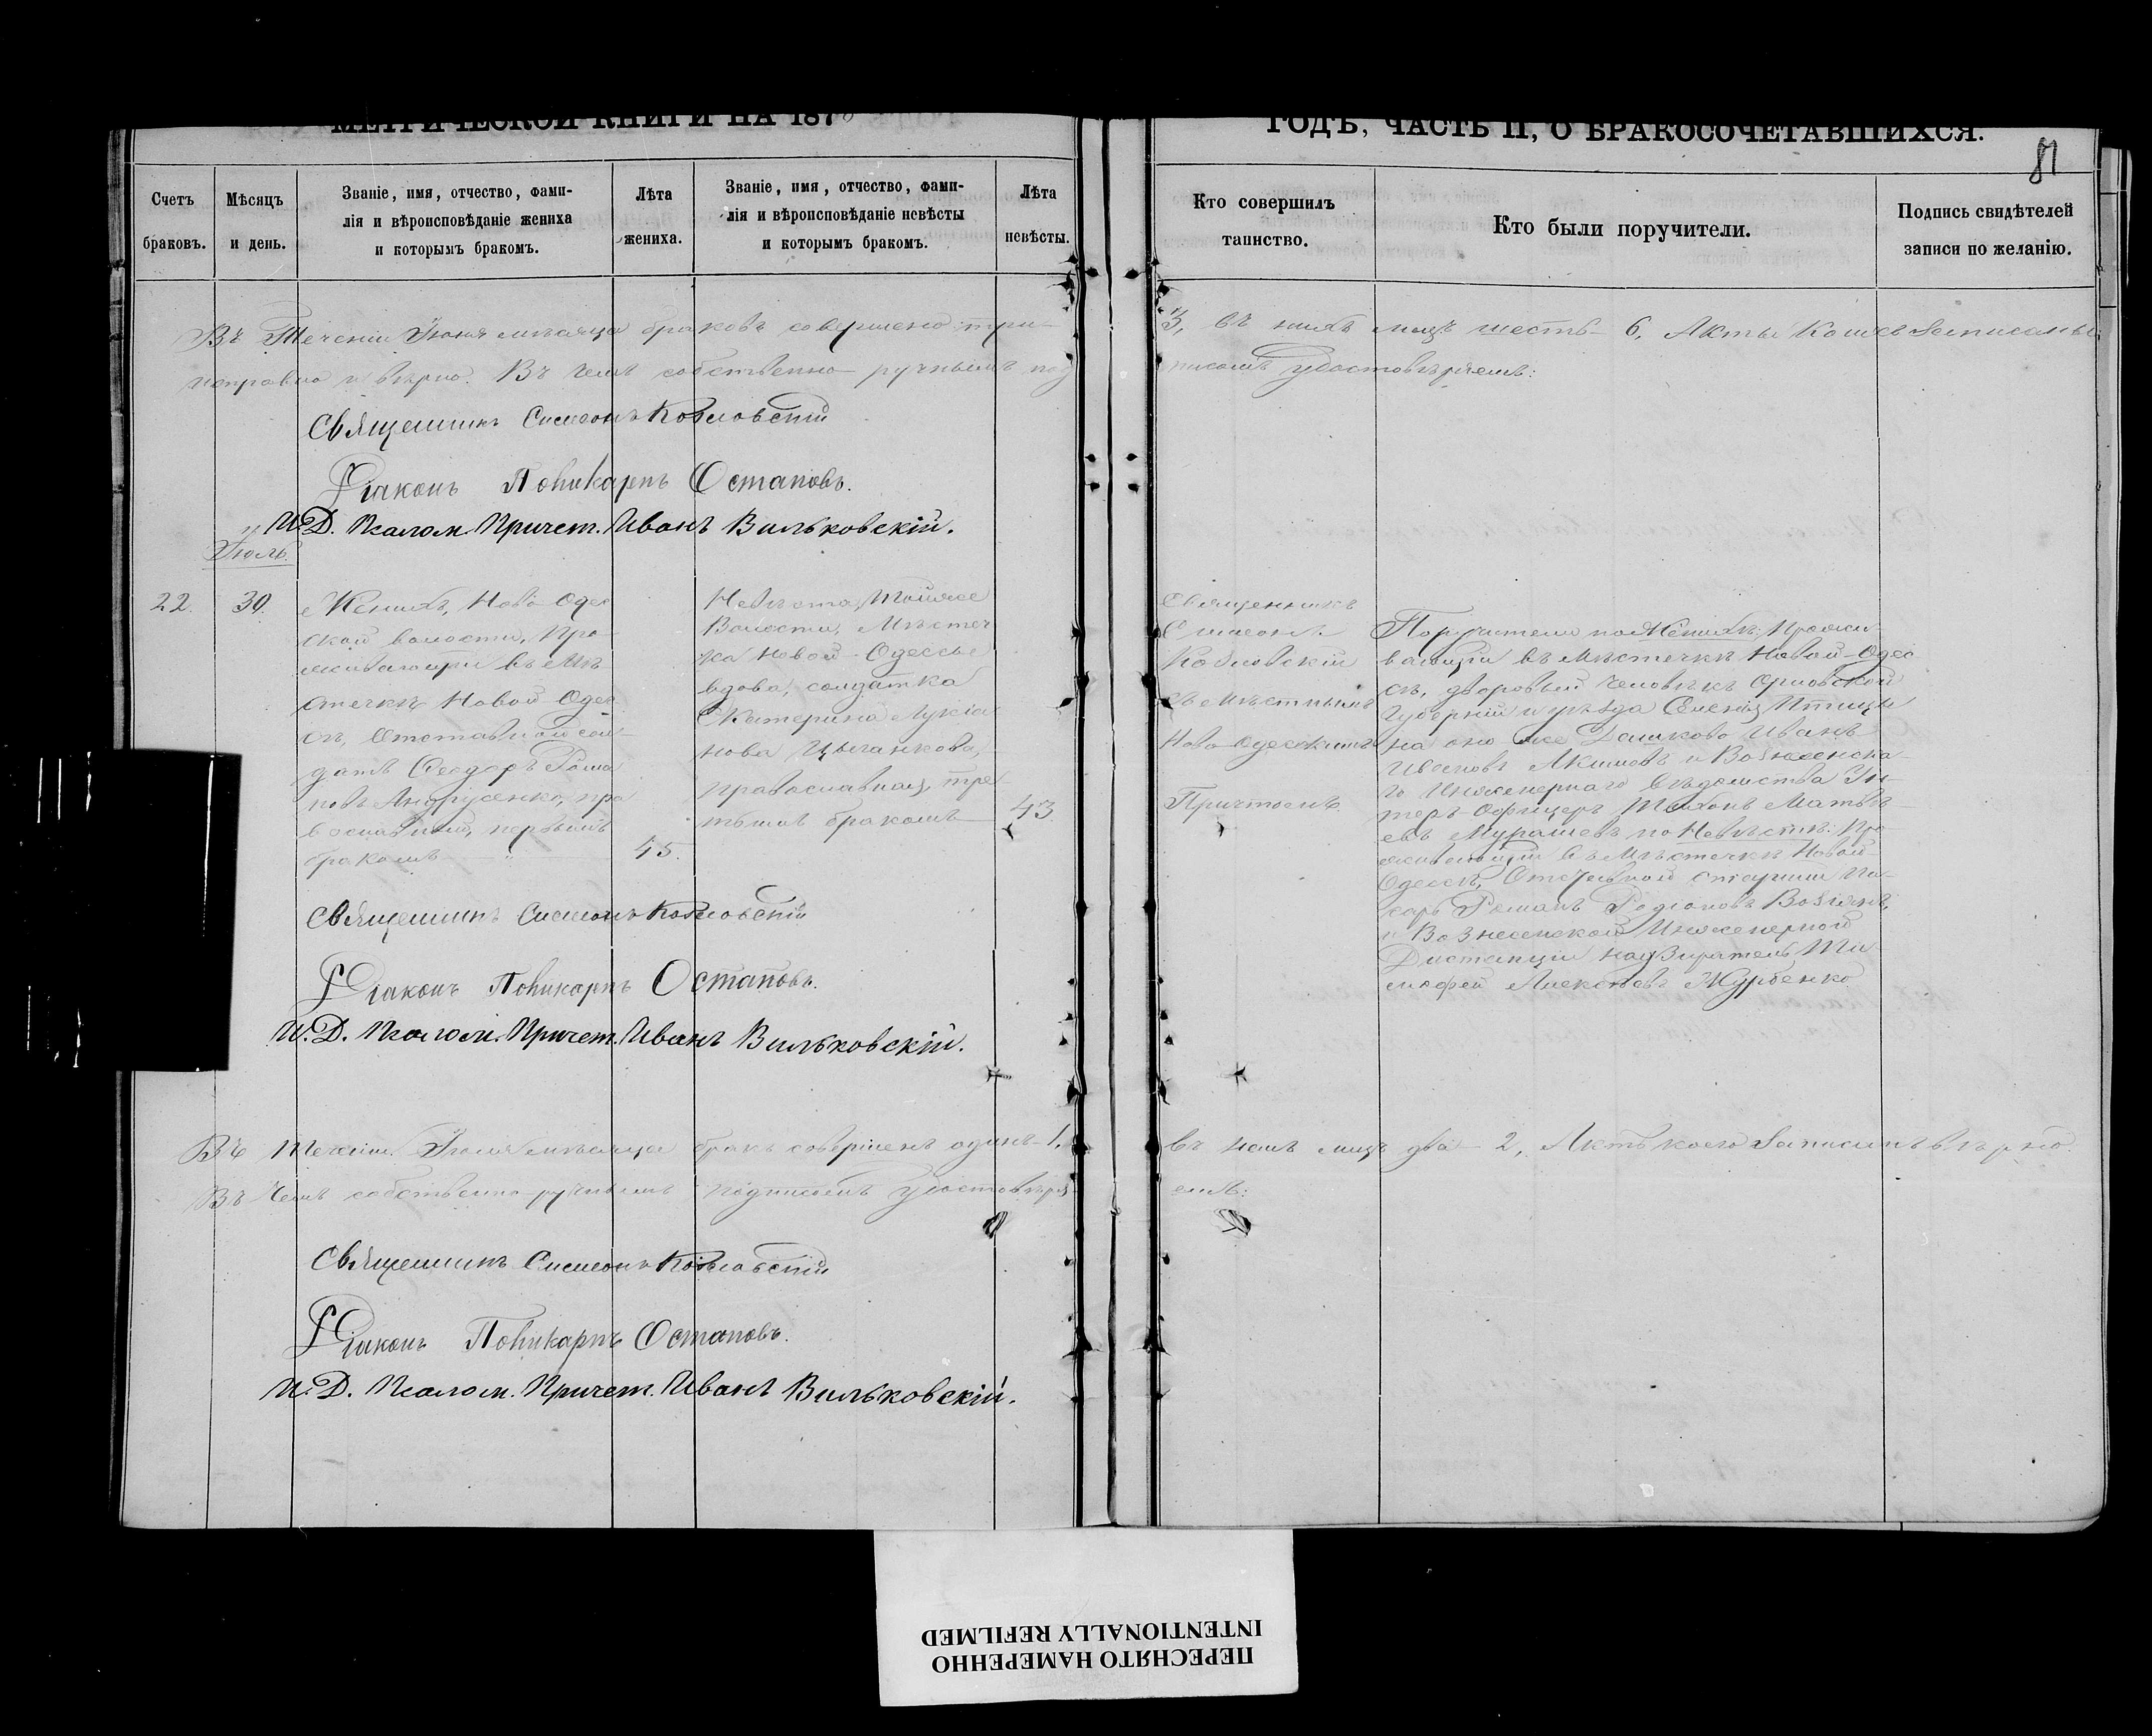 МЕТРИЧЕСКОЙ КНИГИ НА 187
ГОДЪ, ЧАСТЬ II, О БРАКОСОЧЕТАВШИХСЯ.
81
Счетъ
браковъ.
Мѣсяцъ
и день.
Званіе, имя, отчество, фами-
лія и вѣроисповѣданіе жениха
и которымъ бракомъ.
Лѣта
жениха.
Званіе, имя, отчество, фами-
лія и вѣроисповѣданіе невѣсты
и которымъ бракомъ.
Лѣта
невѣсты.
Кто совершилъ
таинство.
Кто были поручители.
Подпись свидѣтелей
записи по желанію.
Въ Теченіи Іюня мѣсяца браковъ совершено три
3, въ нихъ лицъ шесть 6, Акты Коихъ Записаны
исправно и вѣрно. Въ чемъ собственно ручнымъ под
писомъ удостовѣряемъ:
Священникъ Симеонъ Козловскій
Діаконъ Поликарпъ Остаповъ.
И.Д. Псалом. Причет. Иванъ Вильковскій.
Іюль.
22.
30.
Женихъ, Ново-Одес
ской волости, Про-
живающій въ Мѣ
стечкѣ Новой Одес
сѣ, Отставной сол
датъ Ѳеодоръ Рома
новъ Андрусенко, пра
вославный, первымъ
бракомъ
45.
Невѣста, Тойже
Волости, Мѣстеч
ка Новой-Одессы
вдова, солдатка
Екатерина Лукіа
нова Цыганкова,
православная, тре
тьимъ бракомъ
43.
Священникъ
Симеонъ
Козловскій
съ мѣстнымъ
Ново-Одесскимъ
Причтомъ
Поручители по Женихѣ: Прожи
вающіи въ Мѣстечкѣ Новой-Одес
сѣ, дворовый человѣкъ Орловской
Губерніи и уѣзда Сельца
на оно же Дашково Иванъ
Ивановъ Акимовъ и Вознесенска
го Инженернаго вѣдомства Ун-
теръ-Офицеръ Тихонъ Матвѣ
евъ Мурашевъ по Невѣстѣ: Про
живающій въ Мѣстечкѣ Новой-
Одессѣ, старшій Пи-
сарь Романъ Родіоновъ
и Вознесенской Инженерной
Дистанціи надзиратель Ти
мофей Алексѣевъ Журбенко
Священникъ Симеонъ Козловскій
Діаконъ Поликарпъ Остаповъ.
И.Д. Псалом. Причет. Иванъ Вильковскій.
Въ Теченіи Іюля мѣсяца бракъ совершенъ одинъ 1.
въ немъ лицъ два 2, Актъ коего Записанъ вѣрно
Въ Чемъ собственно-ручнымъ подписомъ удостовѣря
емъ:
Священникъ Симеонъ Козловскій
Діаконъ Поликарпъ Остаповъ.
И.Д. Псалом. Причет. Иванъ Вильковскій.
ПЕРЕСНЯТО НАМЕРЕННО
INTENTIONALLY REFILMED